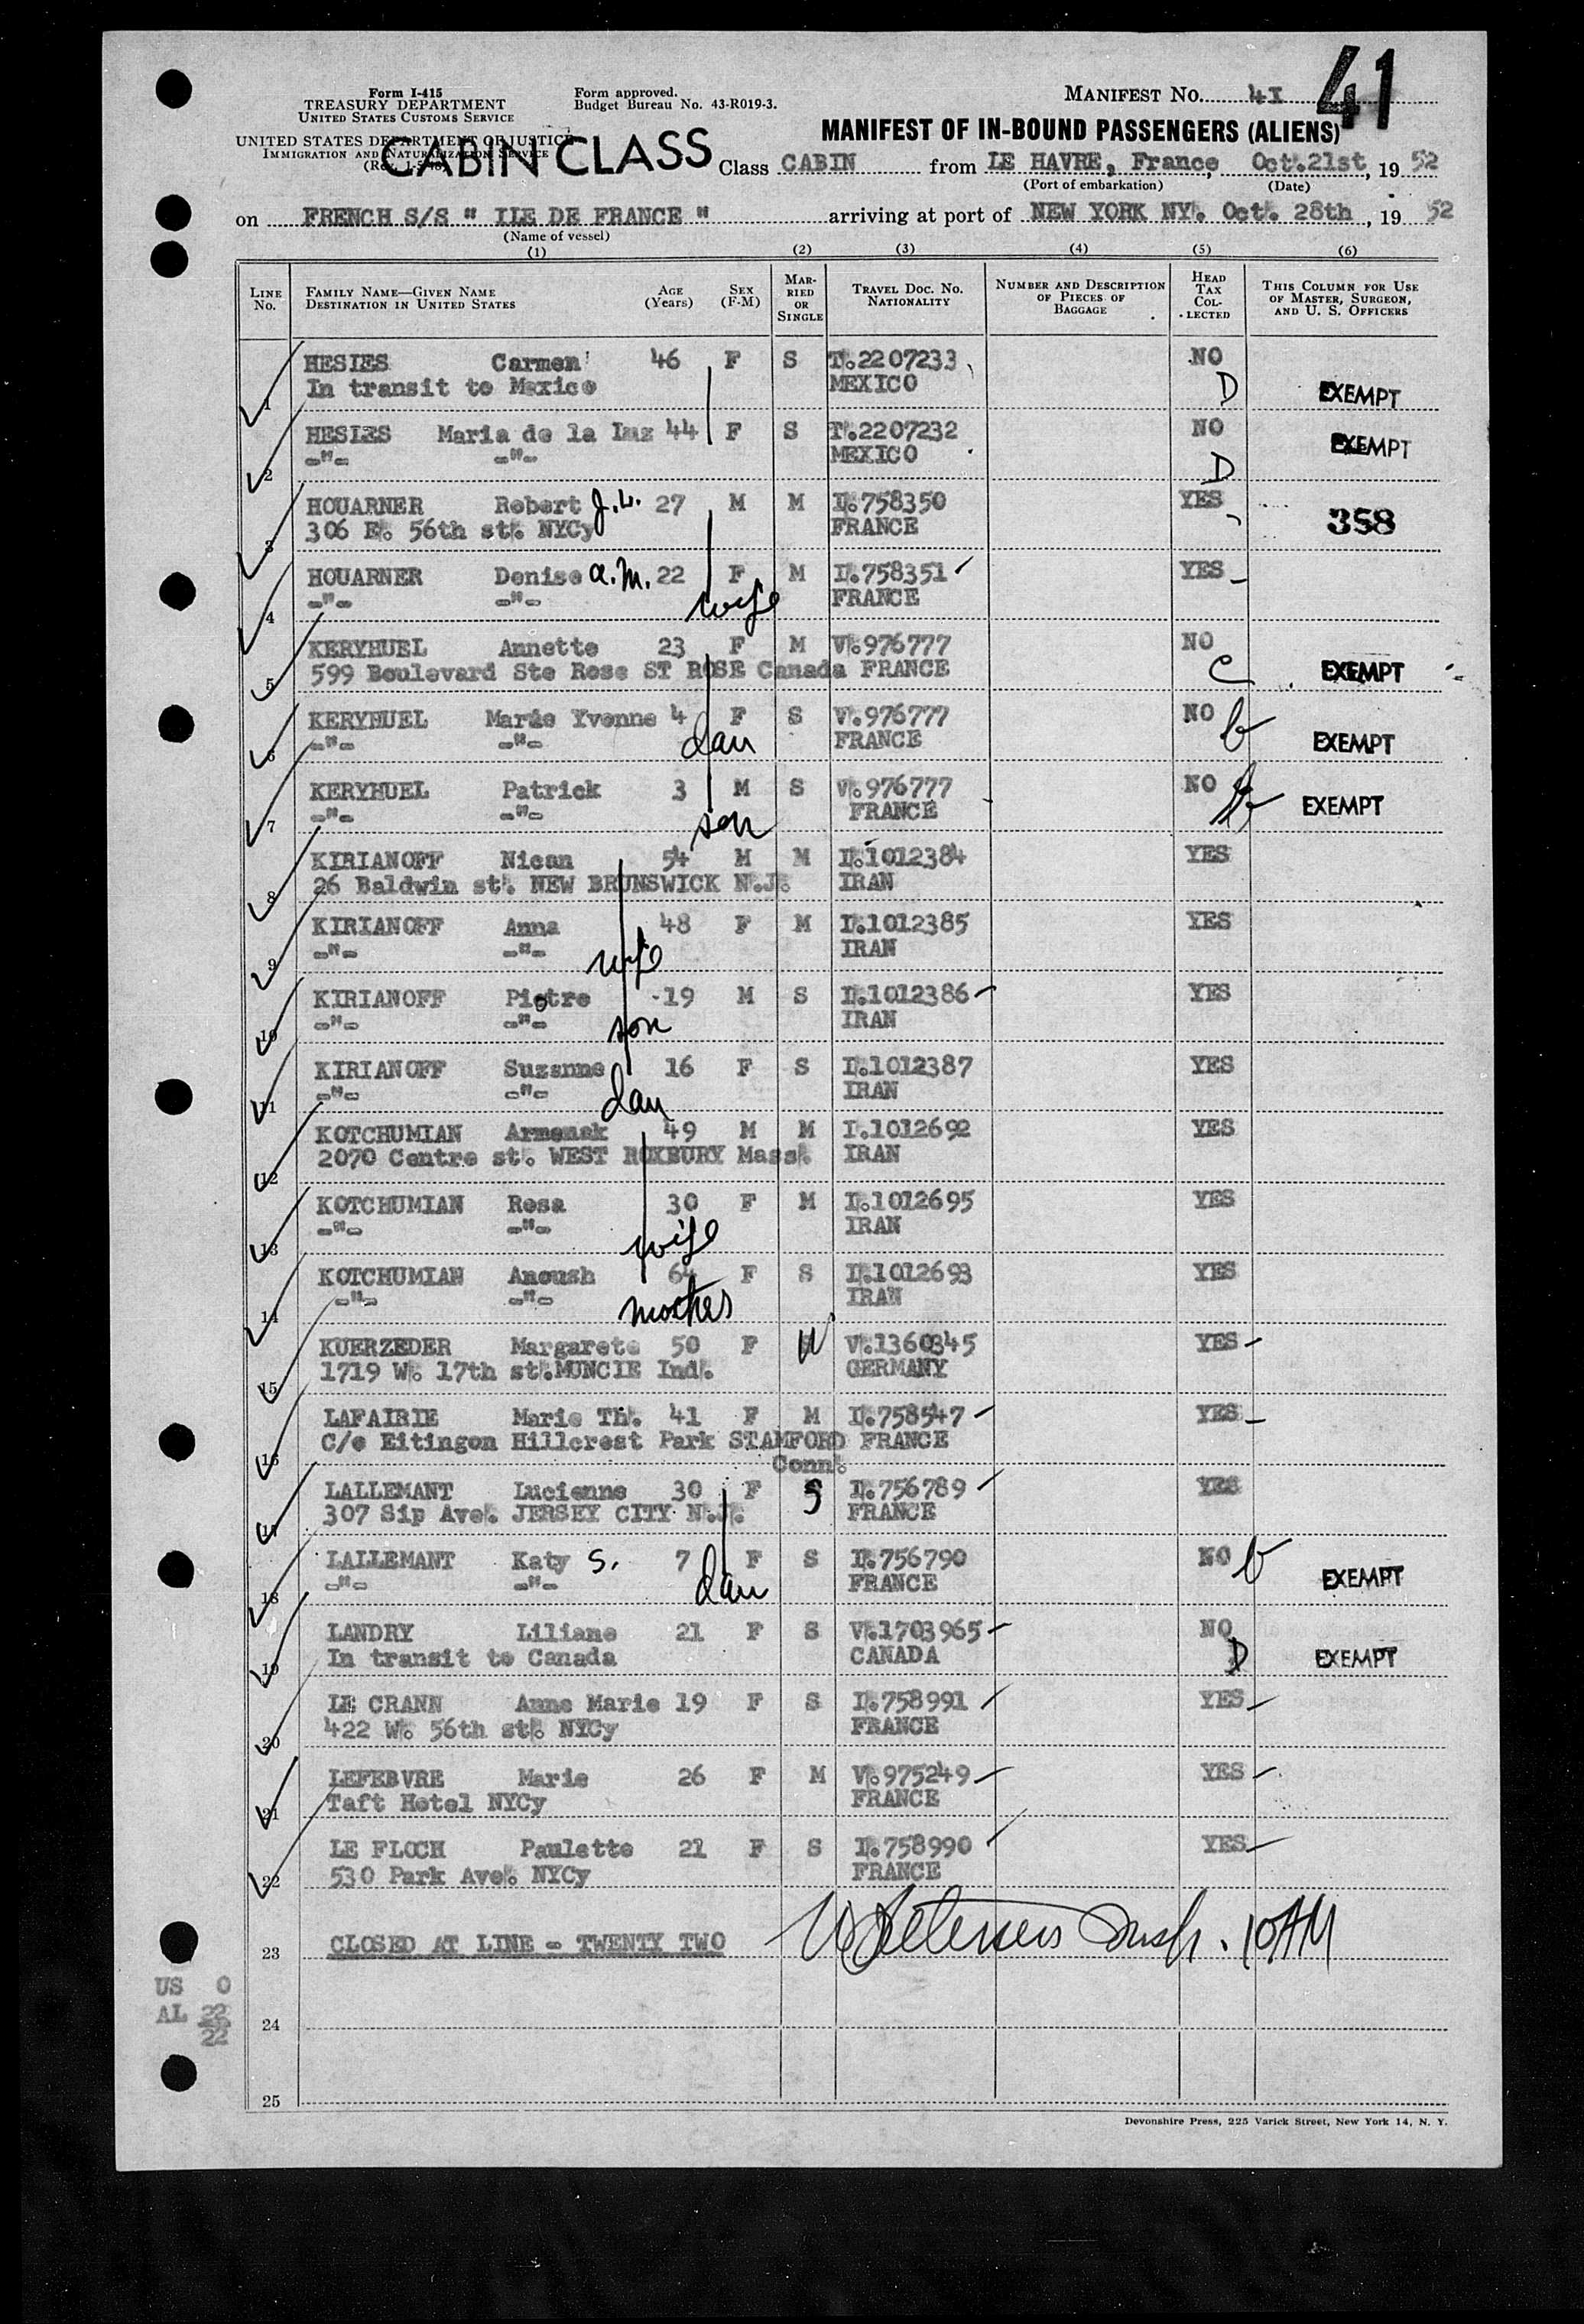 41
Form I-415
TREASURY DEPARTMENT
UNITED STATES CUSTOMS SERVICE
Form approved.
Budget Bureau No. 43-R019-3.
MANIFEST NO. 4I
UNITED STATES DEPARTMENT OF JUSTICE
IMMIGRATION AND NATURALIZATION SERVICE
CABIN CLASS
MANIFEST OF IN-BOUND PASSENGERS (ALIENS)
Class CABIN from LE HAVRE, France, Oct.21st, 19 52
(Port of embarkation) (Date)
on FRENCH S/S " ILE DE FRANCE " arriving at port of NEW YORK NY. Oct. 28th, 19 52
(Name of vessel)
(1) (2) (3) (4) (5) (6)
LINE No. FAMILY NAME—GIVEN NAME DESTINATION IN UNITED STATES AGE (Years) SEX (F-M) MARRIED OR SINGLE TRAVEL DOC. NO. NATIONALITY NUMBER AND DESCRIPTION OF PIECES OF BAGGAGE HEAD TAX COLLECTED THIS COLUMN FOR USE OF MASTER, SURGEON, AND U. S. OFFICERS
HESIES Carmen 46 F S T.2207233 NO
1 In transit to Mexico MEXICO D EXEMPT
HESIES Maria de la Luz 44 F S T.2207232 NO EXEMPT
2 -"- -"- MEXICO D
HOUARNER Robert J.L. 27 M M I.758350 YES
3 306 E. 56th st. NYCy FRANCE 358
HOUARNER Denise A.M. 22 F M I.758351 YES
4 -"- -"- wife FRANCE
KERYHUEL Annette 23 F M V.976777 NO
5 599 Boulevard Ste Rose ST ROSE Canada FRANCE C EXEMPT
KERYHUEL Marie Yvonne 4 F S V.976777 NO b
6 -"- -"- dau FRANCE EXEMPT
KERYHUEL Patrick 3 M S V.976777 NO
7 -"- -"- son FRANCE EXEMPT
KIRIANOFF Nican 54 M M I.1012384 YES
8 26 Baldwin st. NEW BRUNSWICK N.J. IRAN
KIRIANOFF Anna 48 F M I.1012385 YES
9 -"- -"- wife IRAN
KIRIANOFF Piotre 19 M S I.1012386 YES
10 -"- -"- son IRAN
KIRIANOFF Suzanne 16 F S I.1012387 YES
11 -"- -"- dau IRAN
KOTCHUMIAN Armenak 49 M M I.1012692 YES
12 2070 Centre st. WEST ROXBURY Mass. IRAN
KOTCHUMIAN Rosa 30 F M I.1012695 YES
13 -"- -"- wife IRAN
KOTCHUMIAN Anoush 64 F S I.1012693 YES
14 -"- -"- mother IRAN
KUERZEDER Margarete 50 F W V.1360345 YES
15 1719 W. 17th st.MUNCIE Ind. GERMANY
LAFAIRIE Marie Th. 41 F M I.758547 YES
16 C/o Eitingon Hillcrest Park STAMFORD FRANCE
Conn.
LALLEMANT Lucienne 30 F S I.756789 YES
17 307 Sip Ave. JERSEY CITY N.J. FRANCE
LALLEMANT Katy S. 7 F S I.756790 NO b
18 -"- -"- dau FRANCE EXEMPT
LANDRY Liliane 21 F S V.1703965 NO
19 In transit to Canada CANADA D EXEMPT
LE CRANN Anne Marie 19 F S I.758991 YES
20 422 W. 56th st. NYCy FRANCE
LEFEBVRE Marie 26 F M V.975249 YES
21 Taft Hotel NYCy FRANCE
LE FLOCH Paulette 21 F S I.758990 YES
22 530 Park Ave. NYCy FRANCE
23 CLOSED AT LINE - TWENTY TWO 10AM
US 0
AL 22
22
24
25
Devonshire Press, 225 Varick Street, New York 14, N. Y.